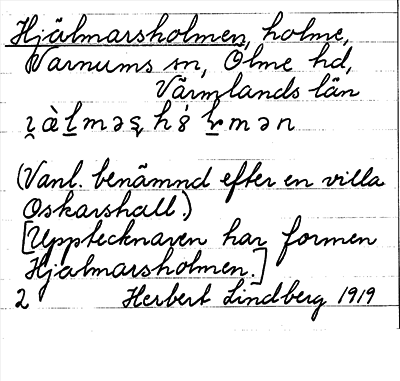 Hjälmarsholmen, holme,
Varnums sn, Ölme hd,
Värmlands län
(Vanl. benämnd efter en villa
Oskarshall.)
[Upptecknaren har formen
Hjalmarsholmen.]
2 Herbert Lindberg 1919